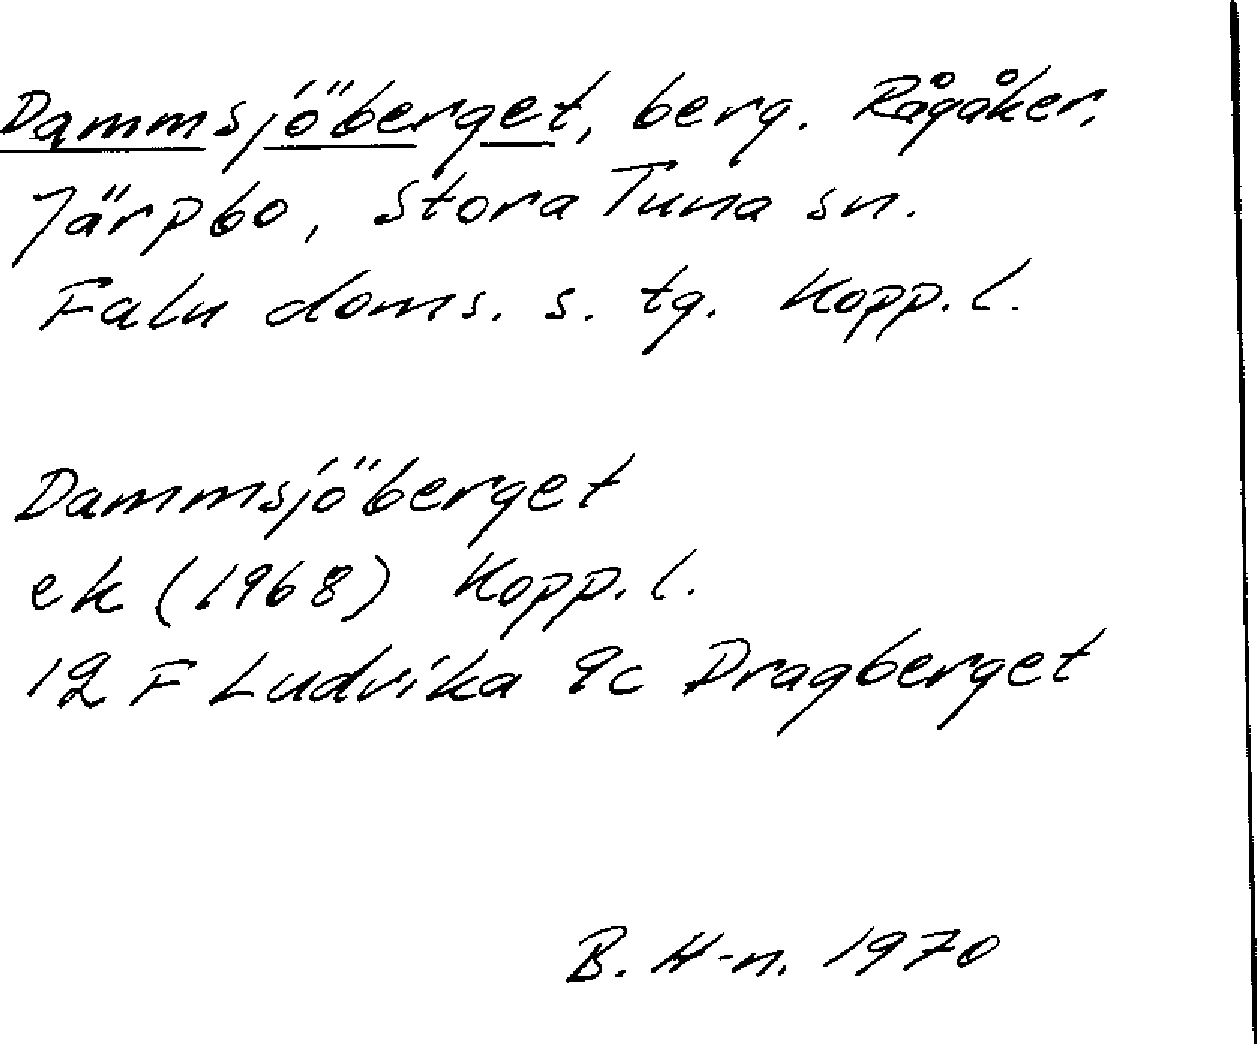 Dammsjöberget, berg. Rågåker,
Järpbo, Stora Tuna sn.
Falu doms. s. tg. Kopp. l.
Dammsjöberget
ek (1968) Kopp. l.
12 F Ludvika 9c Dragberget
B. H-n. 1970